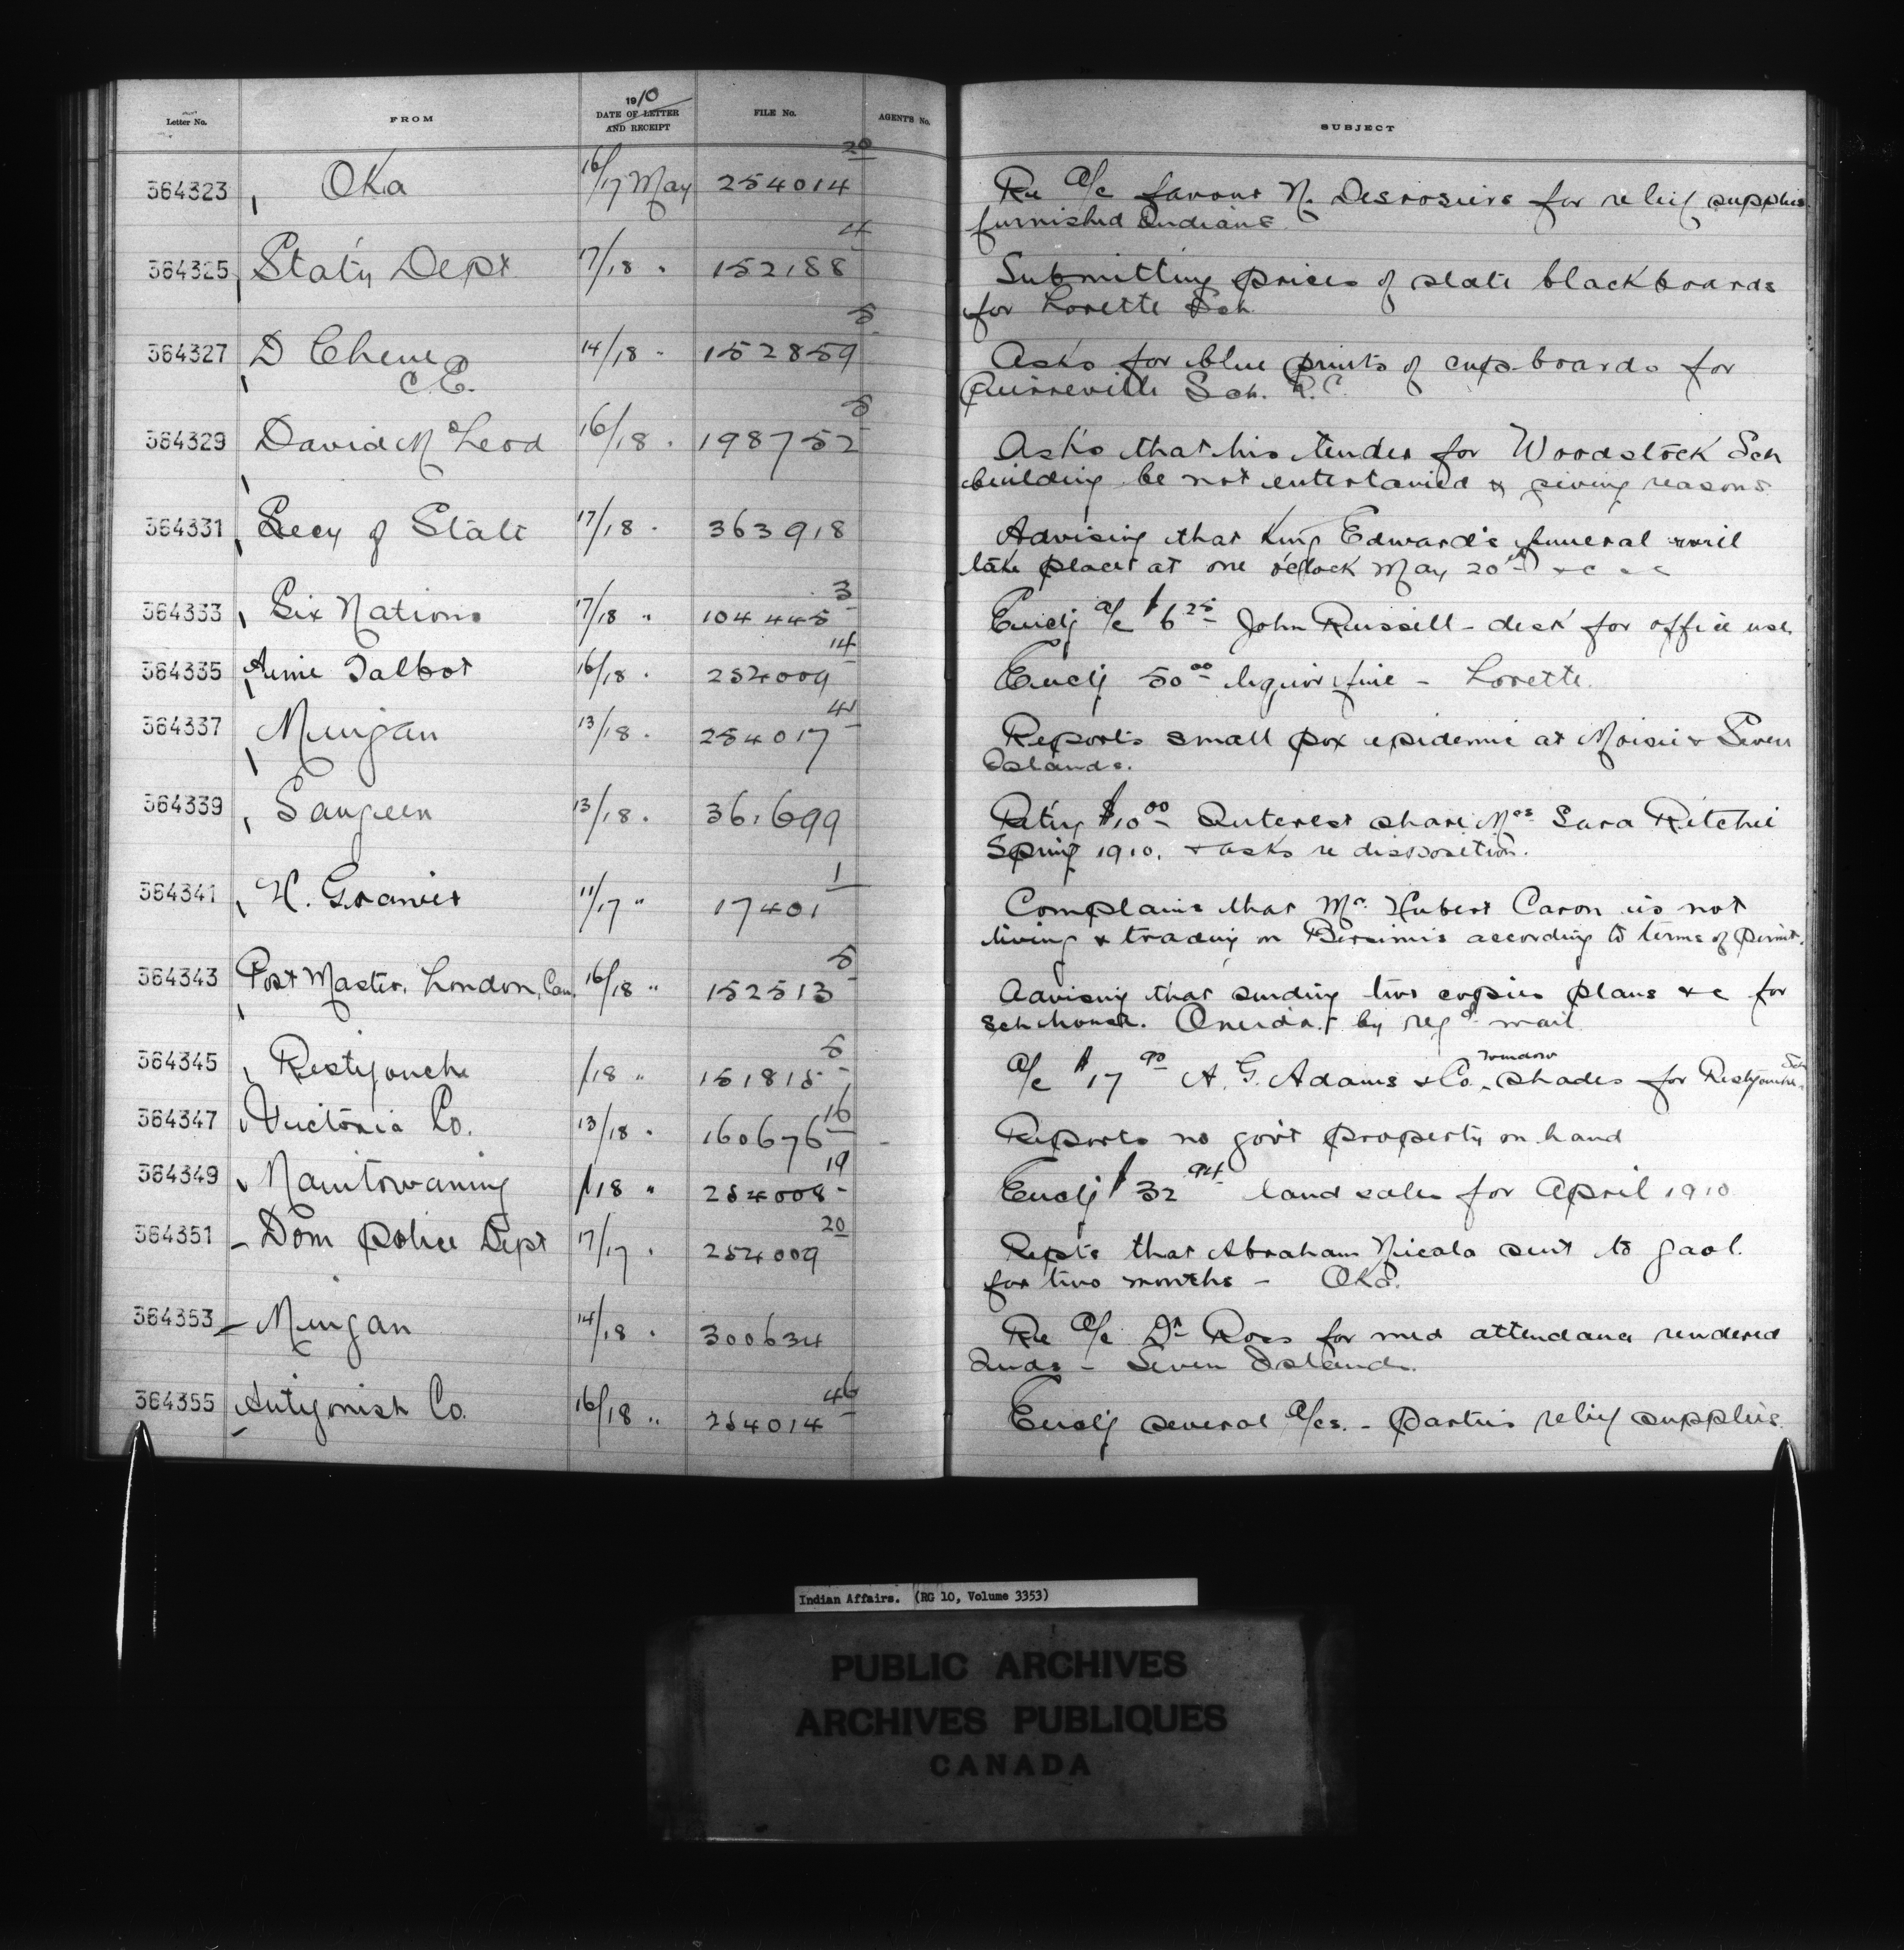 Letter No. FROM 1910 DATE OF LETTER AND RECEIPT FILE No. AGENT'S No. SUBJECT
364323 Oka 16/17 May 254014 20 Re a/c favour N. Desrosiers for relief supplies
furnished Indians
364325 Stat'y Dept 17/18 " 152188 4 Submitting prices of slate blackboards
for Lorette Sch
364327 D Chene 14/18 " 152859 5 Asks for blue prints of cupboards for
C.E. Pierreville Sch. R.C.
364329 David McLeod 16/18 " 198752 5 Asks that his tender for Woodstock Sch
building be not entertained & giving reasons
364331 Secy of State 17/18 " 363918 Advising that King Edward's funeral will
take place at one o'clock May 20th &c &c
364333 Six Nations 17/18 " 104445 3 Encly a/c $6 25 John Russell - desk for office use
364335 Aimé Talbot 16/18 " 254009 14 Encly 50 00 liquor fine - Lorette.
364337 Mingan 13/18 " 254017 41 Reports small pox epidemic at Moisie & Seven
Islands.
364339 Saugeen 13/18 " 361699 Retg $10 00 Interest share Mrs Sara Ritchie
Spring 1910, & asks re disposition.
364341 H. Granier 11/17 " 17401 1 Complains that Mr. Hubert Caron is not
living & trading on Bersimis according to terms of permit.
364343 Post Master, London, Can. 16/18 " 152513 5 Advising that sending two copies plans &c for
Sch house. Oneida by regd mail
364345 Restigouche /18 " 151815 5 a/c $17 90 A. G. Adams & Co. window shades for Restigouche Sch
364347 Victoria Co. 13/18 " 160676 16 - Reports no gov't property on hand
364349 Manitowaning /18 " 254008 19 Encly $32 94 land sales for April 1910
364351 Dom police Dept 17/17 " 254009 20 Repts that Abraham Nicola sent to gaol
for two months - Oka.
364353 Mingan 14/18 " 300634 Re a/c Dr Ross for med attendance rendered
Inds - Seven Islands.
364355 Antigonish Co. 16/18 " 254014 46 Encly several a/cs. - parties relief supplies
Indian Affairs. (RG 10, Volume 3353)
PUBLIC ARCHIVES
ARCHIVES PUBLIQUES
CANADA